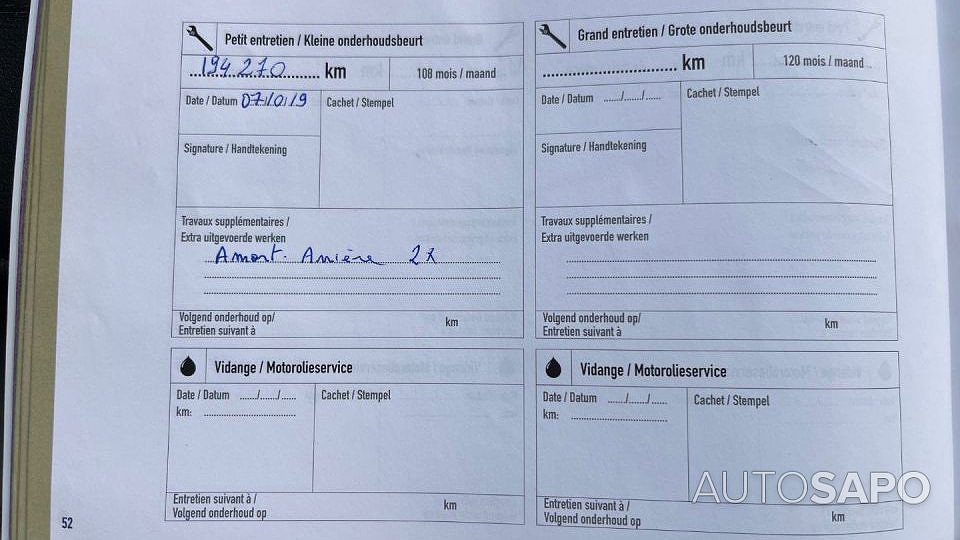 Petit entretien / Kleine onderhoudsbeurt
194 270 km
108 mois / maand
Date / Datum 07/0/19
Cachet / Stempel
Signature / Handtekening
Travaux supplémentaires /
Extra uitgevoerde werken
Amort. Arrière 2x
Volgend onderhoud op/
Entretien suivant à
km
Grand entretien / Grote onderhoudsbeurt
km
120 mois / maand
Date / Datum ..../..../....
Cachet / Stempel
Signature / Handtekening
Travaux supplémentaires /
Extra uitgevoerde werken
Volgend onderhoud op/
Entretien suivant à
km
Vidange / Motorolieservice
Date / Datum ..../..../....
km:
Cachet / Stempel
Entretien suivant à /
Volgend onderhoud op
km
Vidange / Motorolieservice
Date / Datum ..../..../....
km:
Cachet / Stempel
Entretien suivant à /
Volgend onderhoud op
km
52
AUTOSAPO